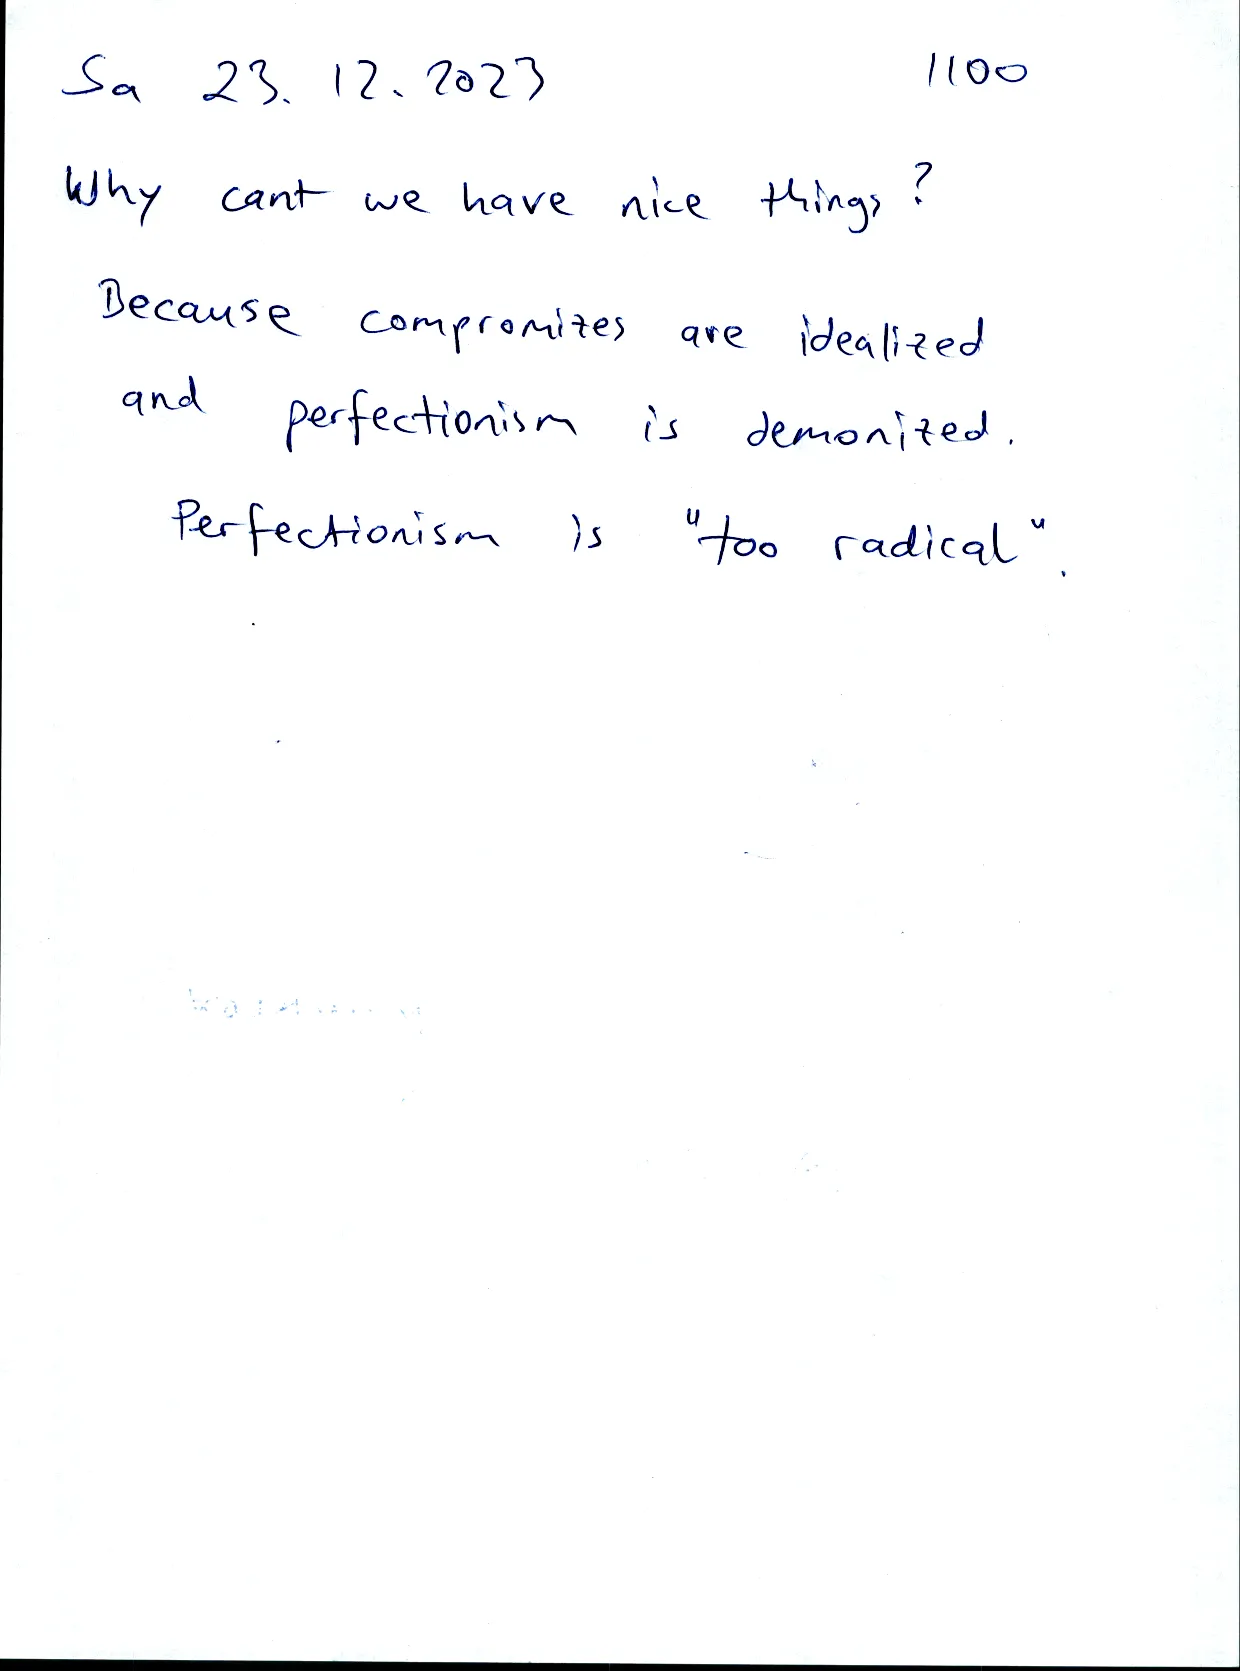 Sa 23. 12. 2023 1100
Why cant we have nice things?
Because compromizes are idealized
and perfectionism is demonized.
Perfectionism is "too radical".